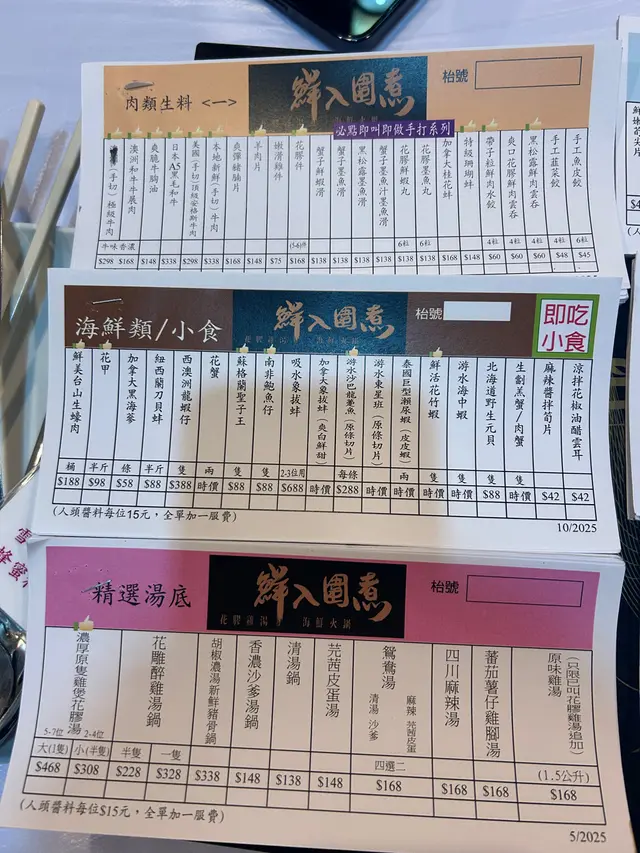 肉類生料 <一>
鮮入圍煮
枱號
必點即叫即做手打系列
(手切)極級牛肉
澳洲和牛牛展肉
爽脆牛胸油
日本A5黑毛和牛
美國(手切)頂級安格斯牛肉
本地新鮮(手切)牛肉
爽彈豬腩片
羊肉片
嫩滑雞件
花膠件
蟹子鮮蝦滑
蟹子墨魚滑
黑松露墨魚滑
蟹子墨魚汁墨魚滑
花膠鮮蝦丸
花膠墨魚丸
加拿大桂花蚌
特級珊瑚蚌
帶子粒鮮肉水餃
爽口花膠鮮肉雲吞
黑松露鮮肉雲吞
手工韮菜餃
手工魚皮餃
牛味香濃
(5-6)件
6粒
6粒
4粒
4粒
4粒
4粒
4粒
$298 $168 $148 $338 $298 $338 $168 $148 $75 $168 $138 $138 $138 $138 $138 $138 $168 $148 $60 $60 $60
海鮮類/小食
鮮入圍煮
花膠雞湯 海鮮火鍋
枱號
即吃
小食
鮮美台山生蠔肉
花甲
加拿大黑海參
紐西蘭刀貝蚌
西澳洲龍蝦仔
花蟹
蘇格蘭聖子王
南非鮑魚仔
吸水象拔蚌
加拿大象拔蚌(爽白鮮甜)
游水沙巴龍躉魚(原條切片)
游水東星班(原條切片)
泰國巨型瀨尿蝦(皮皮蝦)
鮮活花竹蝦
游水海中蝦
北海道野生元貝
生劏羔蟹/肉蟹
麻辣醬拌筍片
涼拌花椒油醋雲耳
桶 半斤 條 半斤 隻 兩 隻 隻 2-3位用 每條 兩 隻 隻 隻 隻
$188 $98 $58 $88 $388 時價 $88 $88 $688 時價 $288 時價 時價 時價 時價 $88 時價 $42 $42
(人頭醬料每位15元，全單加一服費)
10/2025
精選湯底
鮮入圍煮
花膠雞湯 海鮮火鍋
枱號
濃厚原隻雞煲花膠湯
花雕醉雞湯鍋
胡椒濃湯新鮮豬骨鍋
香濃沙爹湯鍋
清湯鍋
芫茜皮蛋湯
鴛鴦湯
清湯 沙爹
麻辣 芫茜皮蛋
四川麻辣湯
蕃茄薯仔雞腳湯
原味雞湯
(只限已叫花膠雞湯追加)
5-7位 2-4位
大(1隻) 小(半隻) 半隻 一隻 四選二 (1.5公升)
$468 $308 $228 $328 $338 $148 $138 $148 $168 $168 $168 $168
(人頭醬料每位$15元，全單加一服費)
5/2025